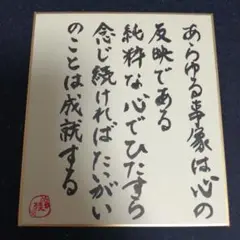 あらゆる事象は心の
反映である
純粋な心でひたすら
念じ続ければたいがい
のことは成就する